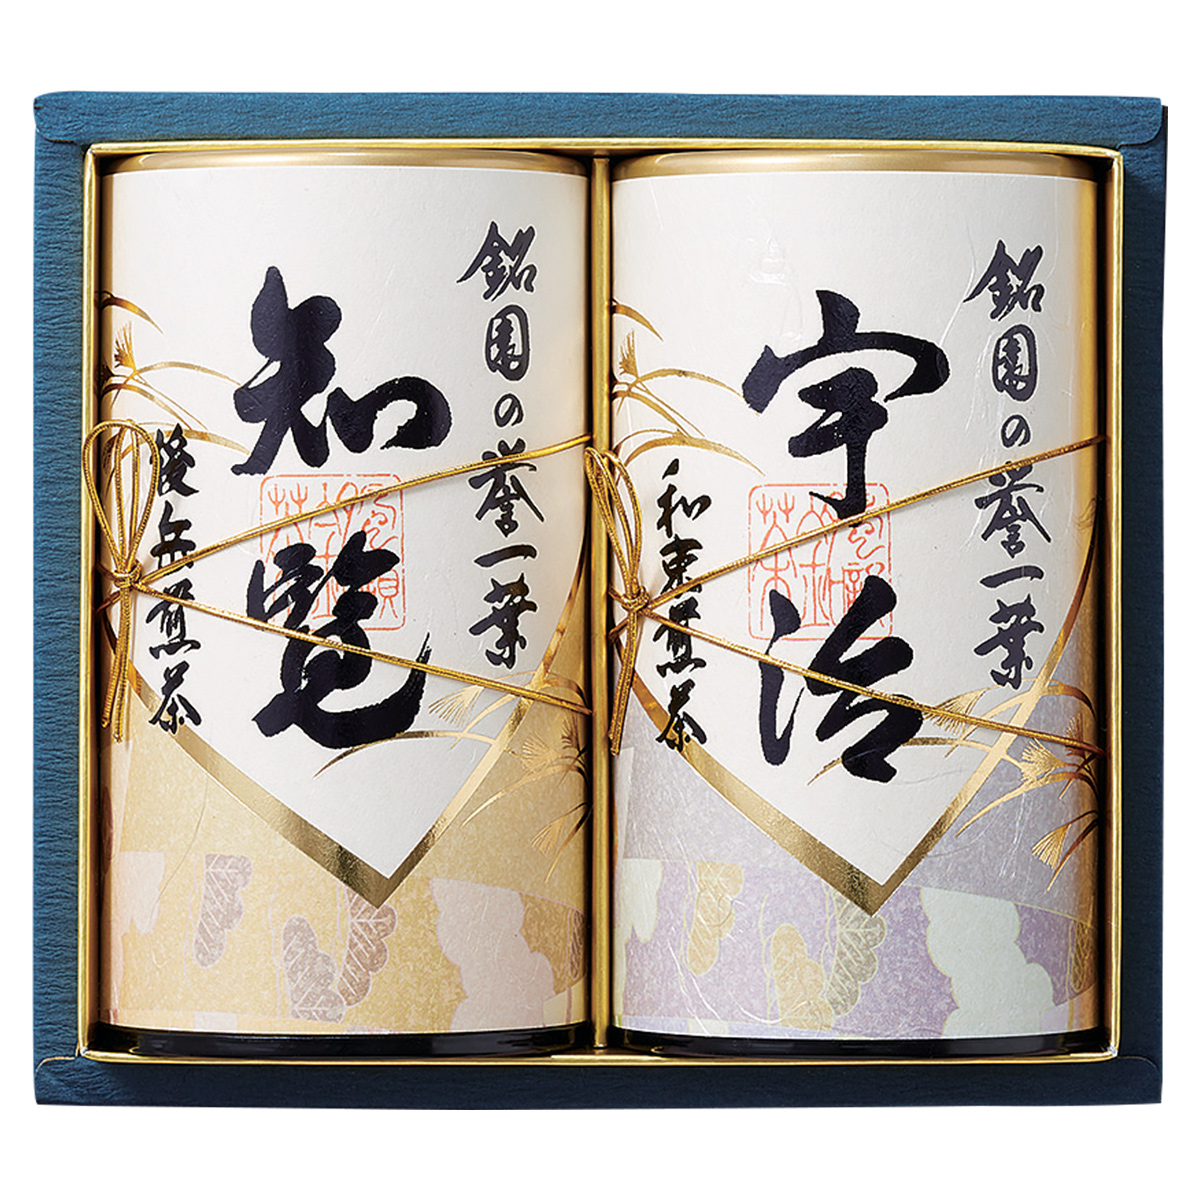 銘園の誉一葉
知覧
後岳煎茶
銘園の誉一葉
宇治
和束煎茶